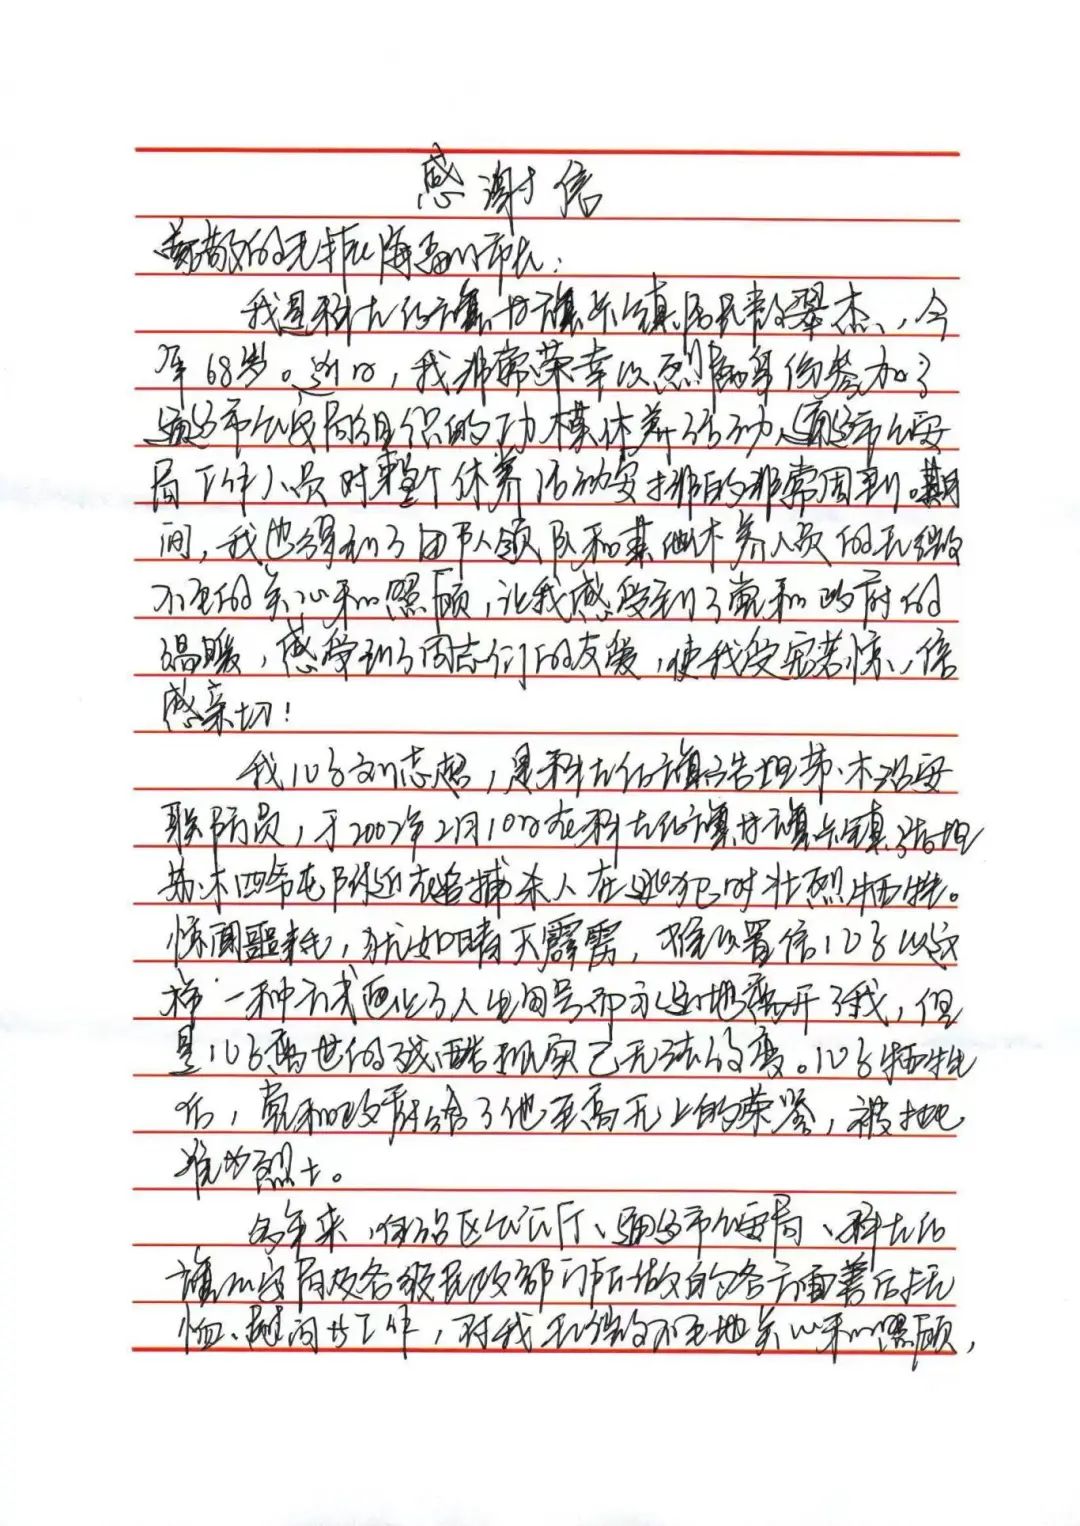 感谢信
尊敬的无非此海勇副市长：
我是科左后旗甘旗卡镇居民郝翠杰，今
年68岁。近日，我非常荣幸以烈属身份参加了
通辽市公安局组织的功模休养活动，通辽市公安
局工作人员对整个休养活动安排的非常周到。期
间，我也得到了团队领队和其他休养人员的无微
不至的关心和照顾，让我感受到了党和政府的
温暖，感受到了同志们的友爱，使我受宠若惊、倍
感亲切！
我儿子刘志超，是科左后旗浩坦苏木治安
联防员，于2002年2月10日在科左后旗甘旗卡镇浩坦
苏木四家屯附近在追捕杀人在逃犯时壮烈牺牲。
惊闻噩耗，犹如晴天霹雳，难以置信儿子以这
样一种方式画上了人生句号而永远地离开了我，但
是儿子离世的残酷现实已无法改变。儿子牺牲
后，党和政府给了他至高无上的荣誉，被批
准为烈士。
多年来，自治区公安厅、通辽市公安局、科左后
旗公安局及各级民政部门所做的各方面善后抚
恤、慰问等工作，对我无微不至地关心和照顾，